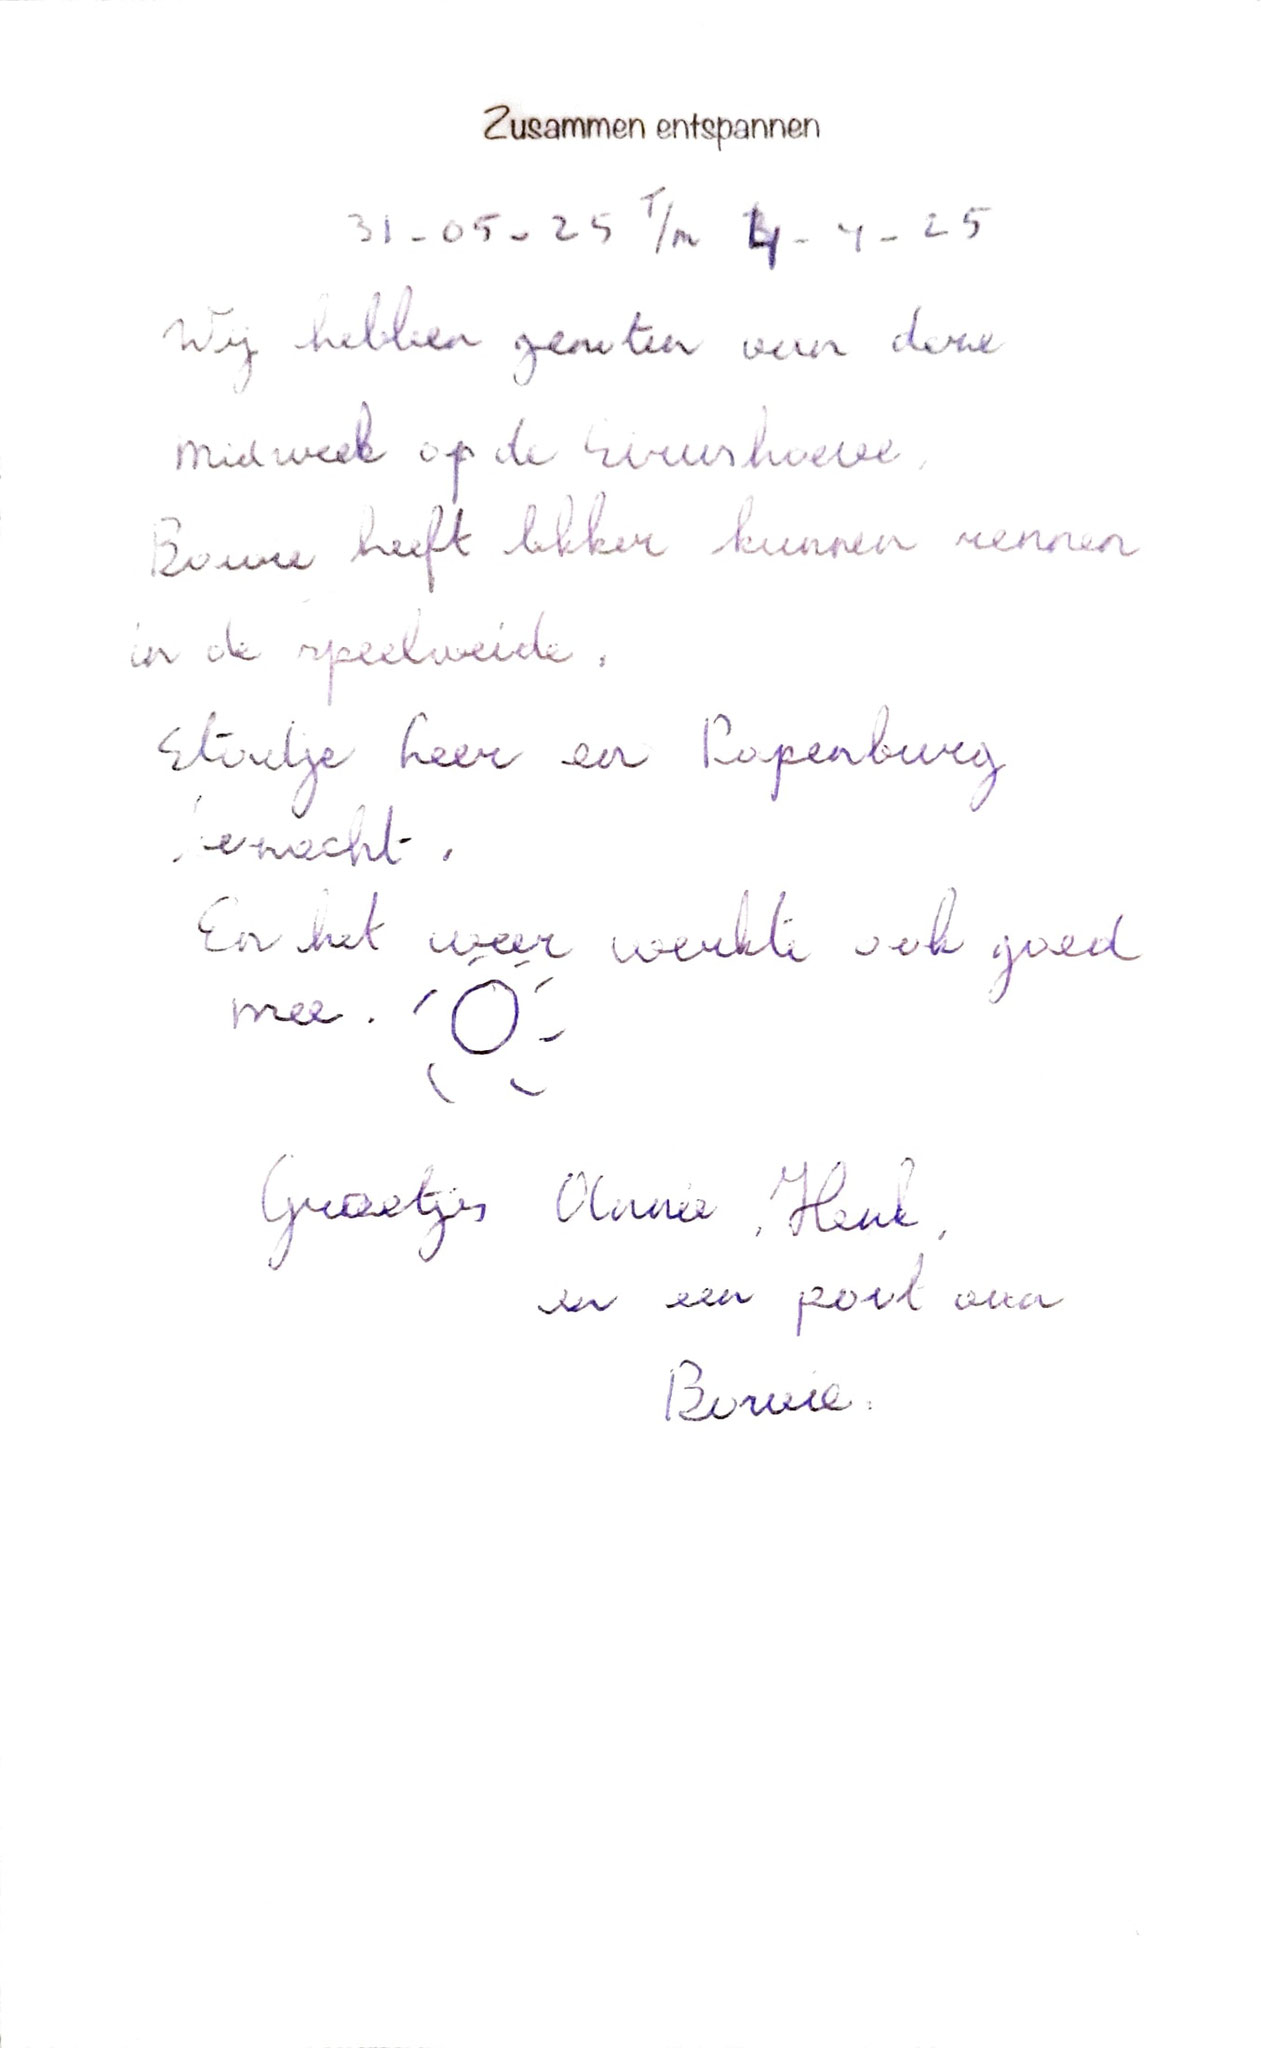 Zusammen entspannen
31-05-25 T/m 4-4-25
Wij hebben genoten van deze
midweek op de
Bowie heeft lekker kunnen rennen
in de speelweide.
Stadje Leer en Papenburg
En het weer werkte ook goed
mee.
Groetjes Annie, Henk,
en een poot van
Bowie.